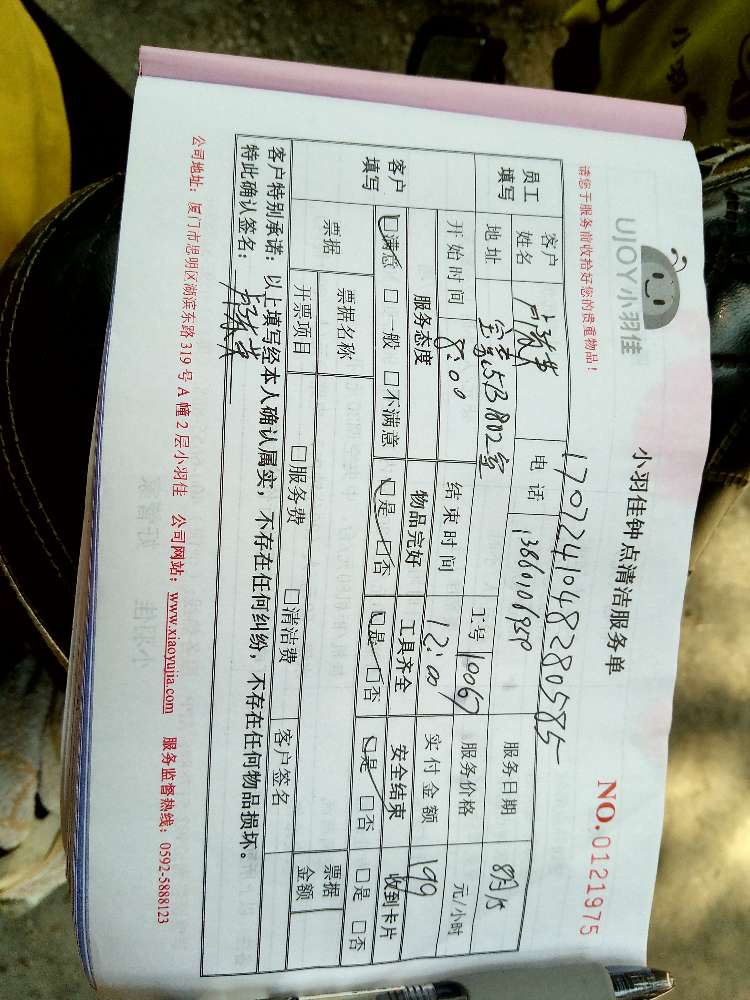 UJOY小羽佳
小羽佳钟点清洁服务单
NO.0121975
请您于服务前收拾好您的贵重物品！
1707241048280585
员工填写
客户姓名
电话
服务日期 8月15
地址 宝嘉5B802室
工号 10067
服务价格 元/小时
开始时间 8:00
结束时间 12:00
实付金额 199
客户填写
服务态度 物品完好 工具齐全 安全结束 收到卡片
□满意 □一般 □不满意 □是 □否 □是 □否 □是 □否 □是 □否
票据 票据名称 □服务费 □清洁费 客户签名 票据金额
开票项目
客户特别承诺：以上填写经本人确认属实，不存在任何纠纷，不存在任何物品损坏。
特此确认签名：
公司地址：厦门市思明区湖滨东路319号A幢2层小羽佳 公司网站：www.xiaoyujia.com 服务监督热线：0592-5888123